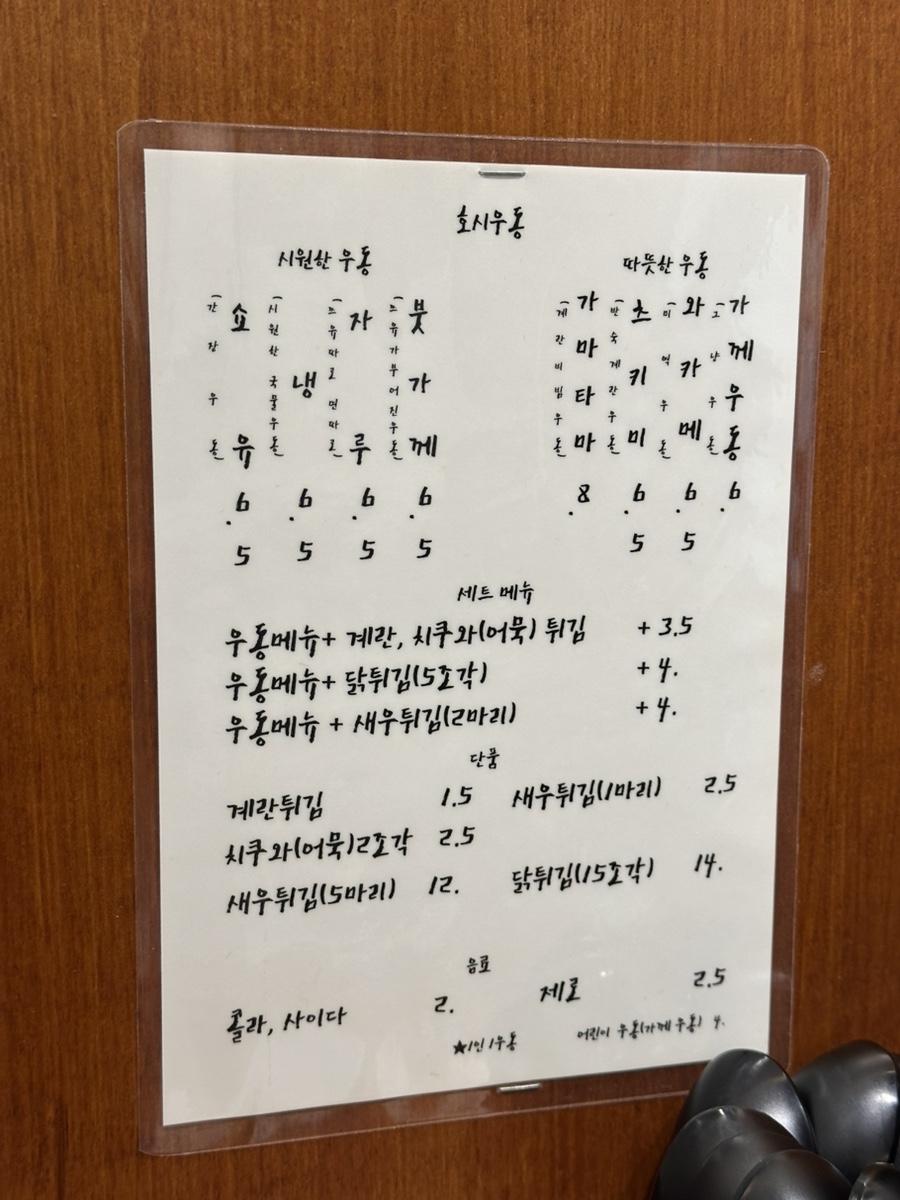 호시우동
시원한 우동
쇼유
(간장우동)
6.5
냉
(시원한 국물우동)
6.5
자루
(쯔유따로 면따로)
6.5
붓가께
(쯔유가 부어진 우동)
6.5
따뜻한 우동
가마타마
(계란비빔우동)
8.
츠키미
(반숙계란우동)
6.5
와카메
(미역우동)
6.5
가께우동
(그냥우동)
6.
세트 메뉴
우동메뉴+ 계란, 치쿠와(어묵) 튀김 +3.5
우동메뉴+ 닭튀김(5조각) +4.
우동메뉴 + 새우튀김(2마리) +4.
단품
계란튀김 1.5 새우튀김(1마리) 2.5
치쿠와(어묵)2조각 2.5
새우튀김(5마리) 12. 닭튀김(15조각) 14.
음료
콜라, 사이다 2. 제로 2.5
★1인 1우동 어린이 우동(가께우동) 4.